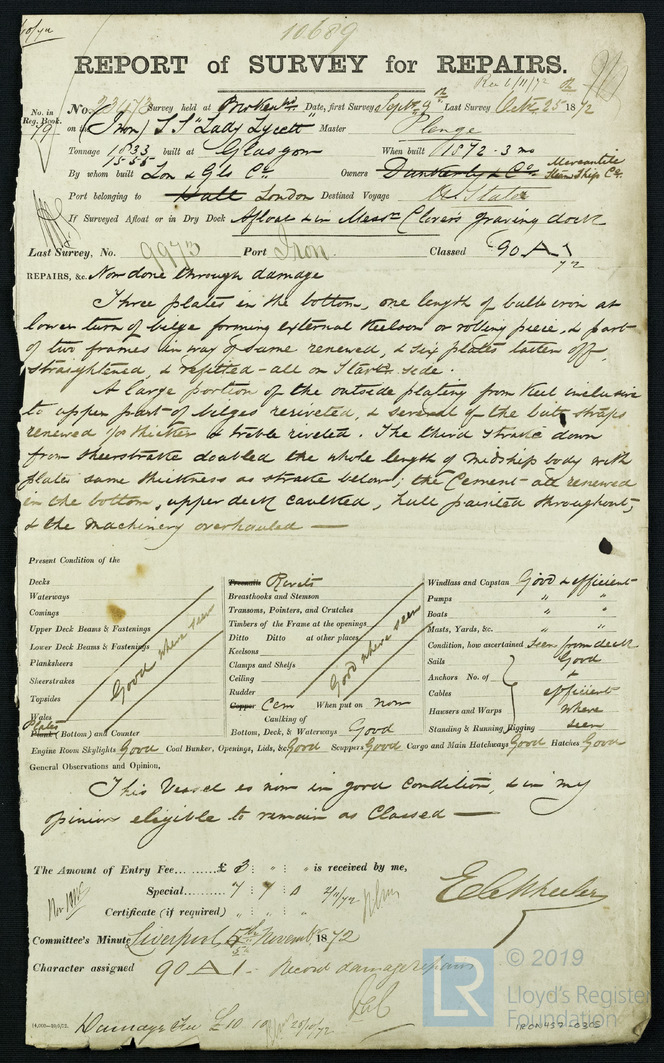 10689
REPORT of SURVEY for REPAIRS.
Rec 6/11/72
No. in Reg. Book. 79
No. Survey held at Birkenhd Date, first Survey Septr 9th Last Survey Octr 25th 1872
on the (Iron) S.S "Lady Lycett" Master Plenge
Tonnage 1833 1555 built at Glasgow When built 1872-3 mo
By whom built Lon & Gls Co. Owners Dunkerly & Co. Mercantile Steam Ship Co.
Port belonging to Hull London Destined Voyage U. States
If Surveyed Afloat or in Dry Dock Afloat & in Messrs Clover's graving dock
Last Survey, No. 9973 Port Iron. Classed 90 A 1 72
REPAIRS, &c. Now done through damage
Three plates in the bottom, one length of bulb iron at
lower turn of bilge forming external Keelson or rolling piece, & part
of two frames in way of same renewed, & six plates taken off,
straightened, & refitted - all on Starbd side.
A large portion of the outside plating from Keel inclusive
to upper part of bilges reriveted, & several of the butt straps
renewed thicker & treble riveted. The third strake down
from sheerstrake doubled the whole length of midship body with
plates same thickness as strake below; the Cement all renewed
in the bottom, upper deck caulked, hull painted throughout,
& the machinery overhauled —
Present Condition of the
Decks
Waterways
Comings
Upper Deck Beams & Fastenings
Lower Deck Beams & Fastenings
Planksheers
Sheerstrakes
Topsides
Wales
Plates
Plank (Bottom) and Counter
Good where seen
Treenails Rivets
Breasthooks and Stemson
Transoms, Pointers, and Crutches
Timbers of the Frame at the openings
Ditto Ditto at other places
Keelsons
Clamps and Shelfs
Ceiling
Rudder
Good where seen
Copper Cem When put on now
Caulking of
Bottom, Deck, & Waterways Good
Windlass and Capstan Good & efficient
Pumps " "
Boats " "
Masts, Yards, &c. " "
Condition, how ascertained Seen from deck
Sails Good
Anchors No. of &
Cables efficient
Hawsers and Warps where
Standing & Running Rigging seen
Engine Room Skylights Good Coal Bunker, Openings, Lids, &c. Good Scuppers Good Cargo and Main Hatchways Good Hatches Good
General Observations and Opinion,
This Vessel is now in good condition, & in my
opinion eligible to remain as Classed —
The Amount of Entry Fee......... £ 3 : " : " is received by me,
Special...... 7 : 7 : 0 2/11/72
Certificate (if required) " : " : "
E C Wheeler
Committee's Minute Liverpool 5th November 1872
Character assigned 90 A 1 - Record damage repairs
Damage Fee £10 10
14,000—
© 2019
LR
Lloyd's Register
Foundation
IRON457-0305